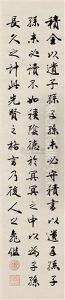 積金以遺子孫子孫未必守積書以遺子
孫子孫未必讀不如積陰德於冥冥之中以為子孫
長久之計此先賢之格言乃後人之龜鑑